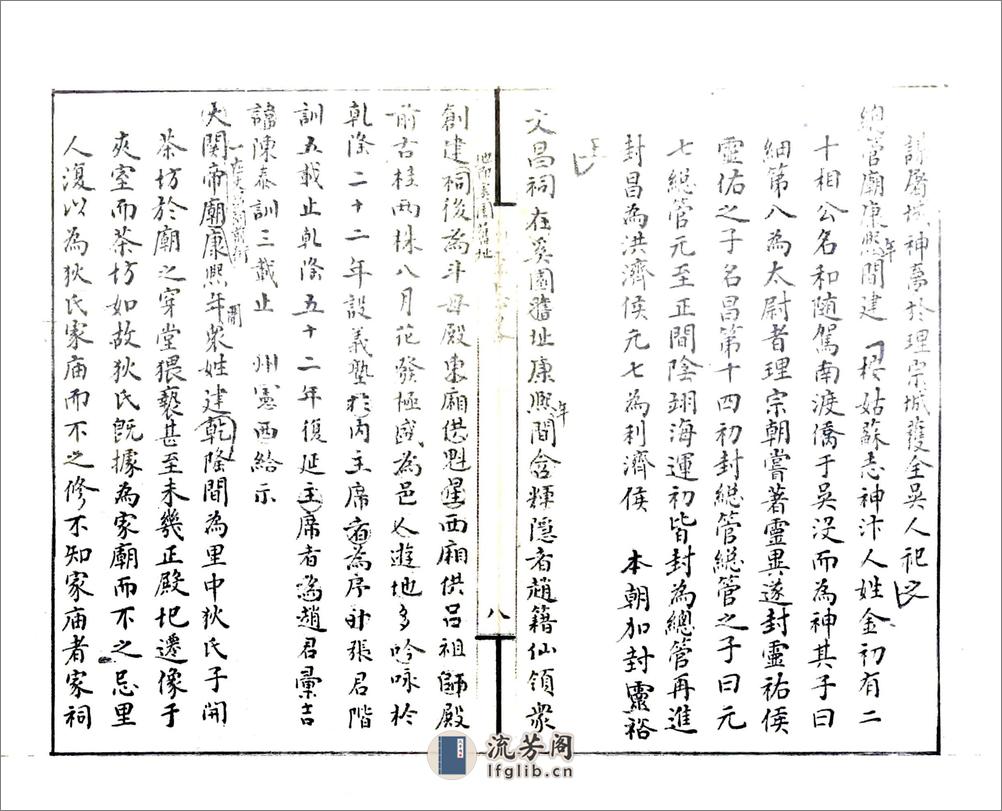 謝厲壇神焉於理宗城獲全吳人祀之
總管廟康熙年間建 根姑蘇志神汴人姓金初有二
十相公名和随駕南渡僑于吳没而為神其子曰
細第八為太尉者理宗朝嘗著靈異遂封靈祐侯
靈佑之子名昌第十四初封總管總管之子曰元
七總管元至正間陰翊海運初皆封為總管再進
封昌為洪濟侯元七為利濟侯 本朝加封靈裕
文昌祠在奚園舊址康熙年間含輝隱者趙籍仙領衆
地即奚園舊址
創建祠後為斗母殿東廂供魁星西廂供吕祖師殿
前古桂两株八月花發極盛為邑人遊地多吟咏於
乾隆二十二年設義塾於内主席者為序卟張君階
訓五載止乾隆五十二年復延主席者為趙君彙吉
諱陳泰訓三載止 州憲西給示
關帝廟康熙年間衆姓建乾隆間為里中狄氏子開
茶坊於廟之穿堂猥褻甚至未幾正殿圯遷像于
夾室而茶坊如故狄氏旣據為家廟而不之忌里
人復以為狄氏家庙而不之修不知家庙者家祠
八
流芳阁
lfglib.cn